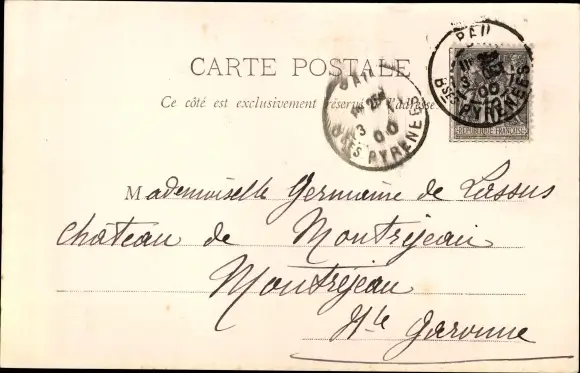 CARTE POSTALE
Ce côté est exclusivement réservé à l'adresse
PAU
BSES PYRENEES
00
REPUBLIQUE FRANÇAISE
Mademoiselle Germaine de Lassus
Château de Montréjeau
Montréjeau
Hte Garonne